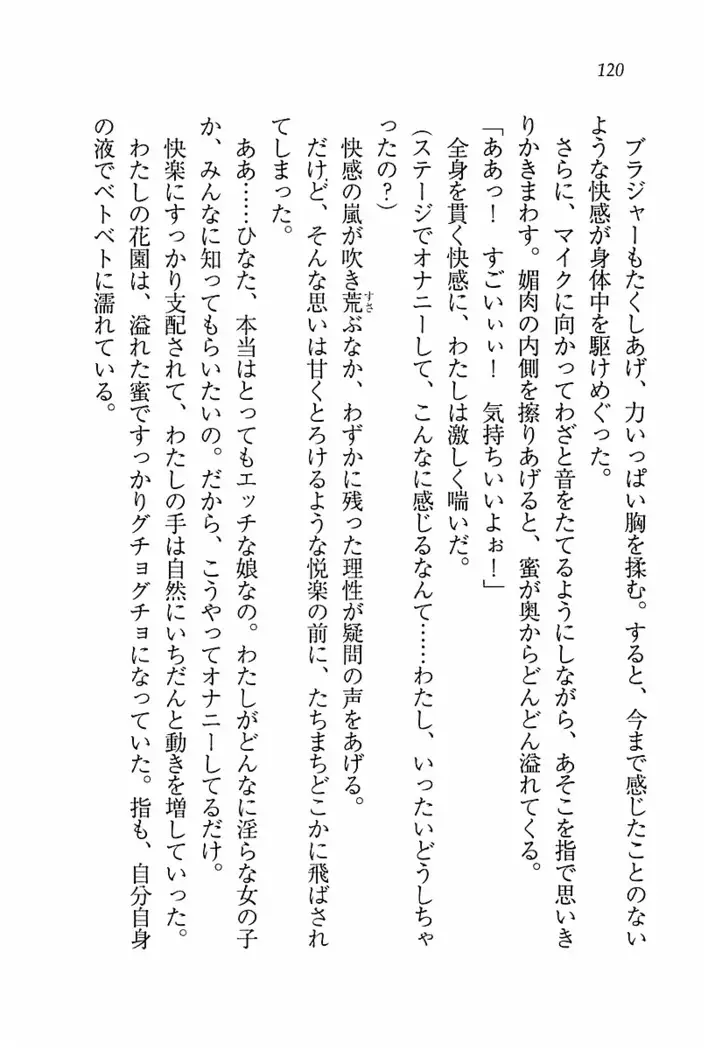 120
ブラジャーもたくしあげ、力いっぱい胸を揉む。すると、今まで感じたことのない
ような快感が身体中を駆けめぐった。
さらに、マイクに向かってわざと音をたてるようにしながら、あそこを指で思いき
りかきまわす。媚肉の内側を擦りあげると、蜜が奥からどんどん溢れてくる。
「ああっ！　すごいぃぃ！　気持ちいいよぉ！」
全身を貫く快感に、わたしは激しく喘いだ。
（ステージでオナニーして、こんなに感じるなんて……わたし、いったいどうしちゃ
ったの？）
快感の嵐が吹き荒すさぶなか、わずかに残った理性が疑問の声をあげる。
だけど、そんな思いは甘くとろけるような悦楽の前に、たちまちどこかに飛ばされ
てしまった。
ああ……ひなた、本当はとってもエッチな娘なの。わたしがどんなに淫らな女の子
か、みんなに知ってもらいたいの。だから、こうやってオナニーしてるだけ。
快楽にすっかり支配されて、わたしの手は自然にいちだんと動きを増していった。
わたしの花園は、溢れた蜜ですっかりグチョグチョになっていた。指も、自分自身
の液でベトベトに濡れている。